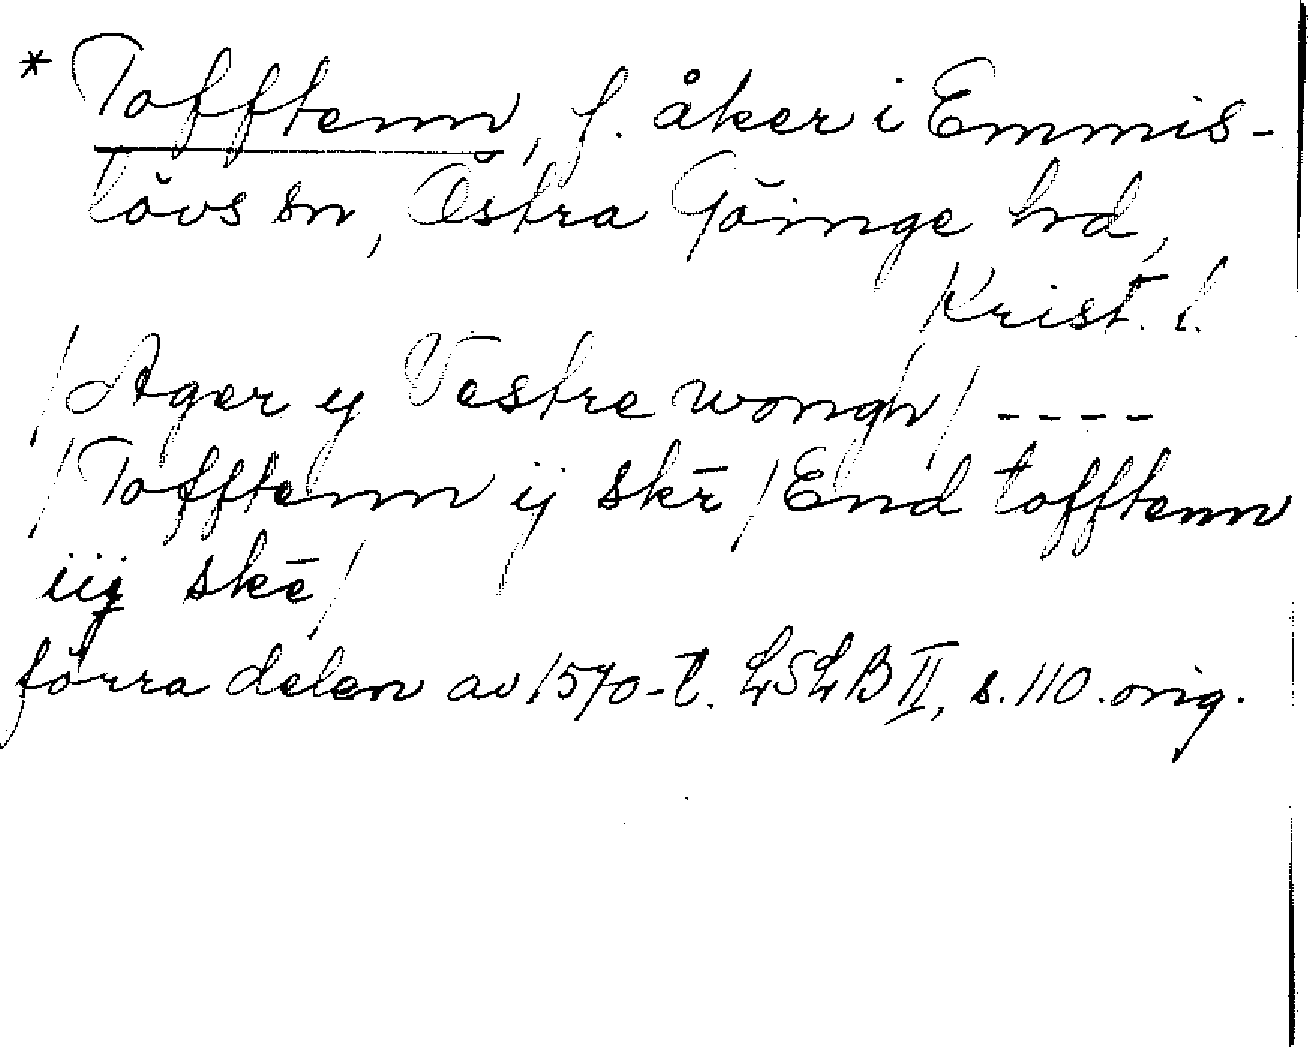 * Tofftenn, f. åker i Emmis-
lövs sn, Östra Göinge hd,
Krist. l.
/Ager y Vestre wongn/ ----
/Tofftenn ij skē /End tofftenn
iij skē/
förra delen av 1570-t. LSLB II, s. 110. orig.